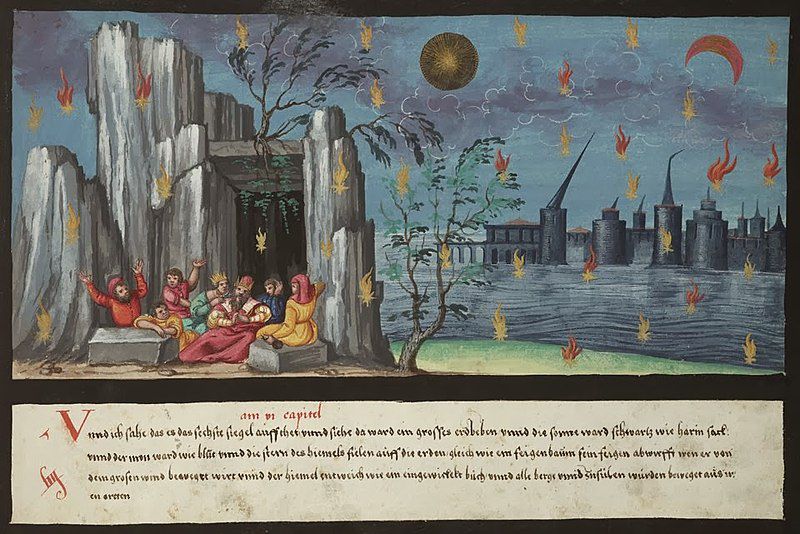 am vi capitel
Vnnd ich sahe das es das sechste siegel auffthet vnnd siehe da ward ein grosses erdbeben vnnd die sonne ward schwartz wie harin sack
vnnd der mon ward wie blůt vnnd die stern des hiemels fielen auff die erden gleich wie ein feigenbaům sein feigen abwirfft wen er von
dem grosen wind bewegt wirt vnnd der hiemel entweich wie ein eingewickelt bůch vnnd alle berge vnnd Insůlen wůrden beweget aus ir
en orten